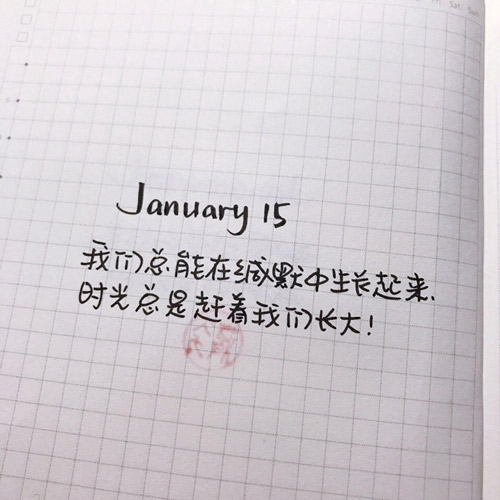 January 15
我们总能在缄默中生长起来、
时光总是赶着我们长大！